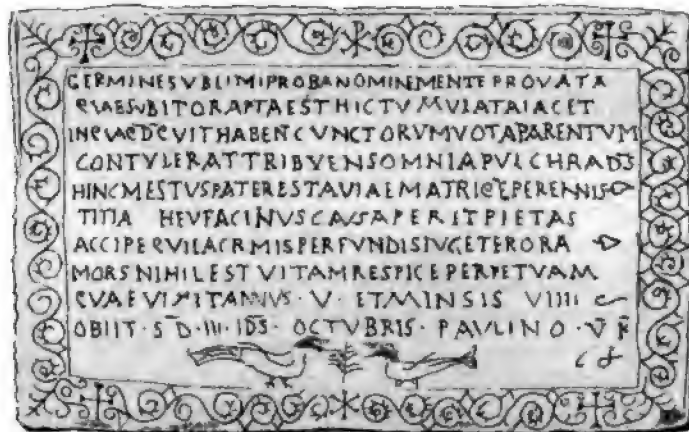 GERMINE SVBLIMI PROBA NOMINE MENTE PROVATA
QVAE SVBITO RAPTA EST HIC TVMVLATA IACET
IN QVA C̄D̄ QVIT HABEN CVNCTORVM VOTA PARENTVM
CONTVLERAT TRIBVENS OMNIA PVLCHRA D̄S̄
HINC MESTVS PATER EST AVIAE MATRIQE PERENNIS
TITIA HEV FACINVS CAVSA PERIT PIETAS
ACCIPE QVI LACRMIS PERFVNDIS IVGETER ORA
MORS NIHIL EST VITAM RESPICE PERPETVAM
QVAE VIXIT ANNVS · V · ET MINSIS VIIII
OBIIT · S D̄ · III · ID̄S · OCTVBRIS · PAVLINO · V̄